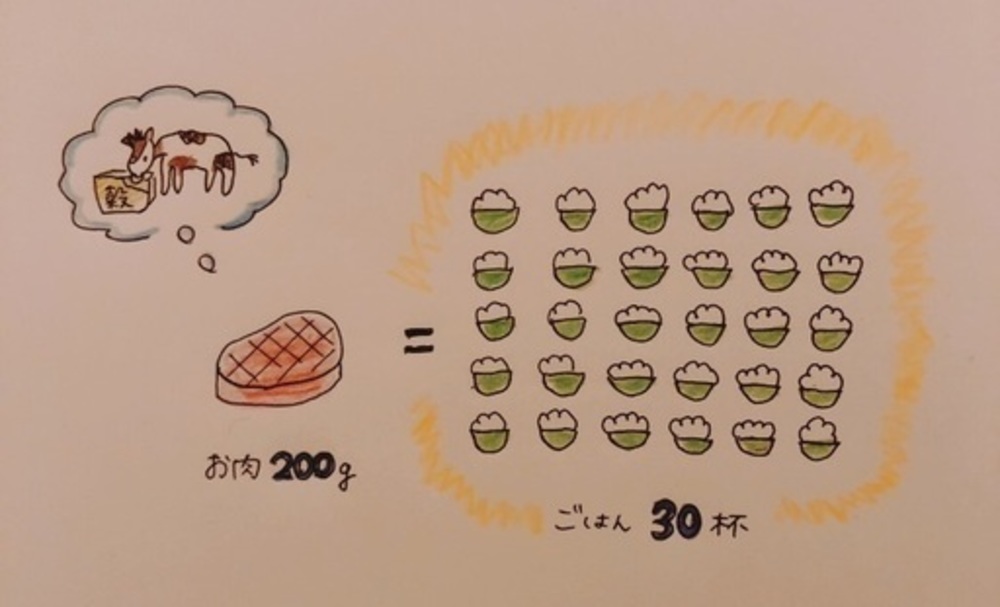 穀
お肉 200g
=
ごはん 30 杯